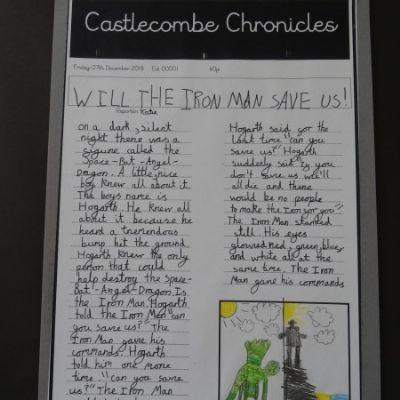 Castlecombe Chronicles
Friday 07th December 2018 Ed: 00001 60p
WILL THE IRON MAN SAVE US!
Reporter: Katie
on a dark, silent
night there was a
figure called the
Space-Bat-Angel-
Dragon. A little nice
boy knew all about it.
The boys name is
Hogarth. He knew all
about it because he
heard a tremendous
bump hit the ground.
Hogarth knew the only
person that could
help destroy the Space-
Bat-Angel-Dragon is
the Iron Man. Hogarth
told the Iron Man "can
you save us?" The
Iron Man gave his
commands. Hogarth
told him one more
time. "Can you save
us?" The Iron Man
Hogarth said for the
last time "can you
save us?" Hogarth
suddenly said if you
don't save us we'll
all die and there
would be no people
to make the Iron for you."
The Iron Man stanked
still. His eyes
glowed red, green, blue,
and white all at the
same time. The Iron
Man gave his commands